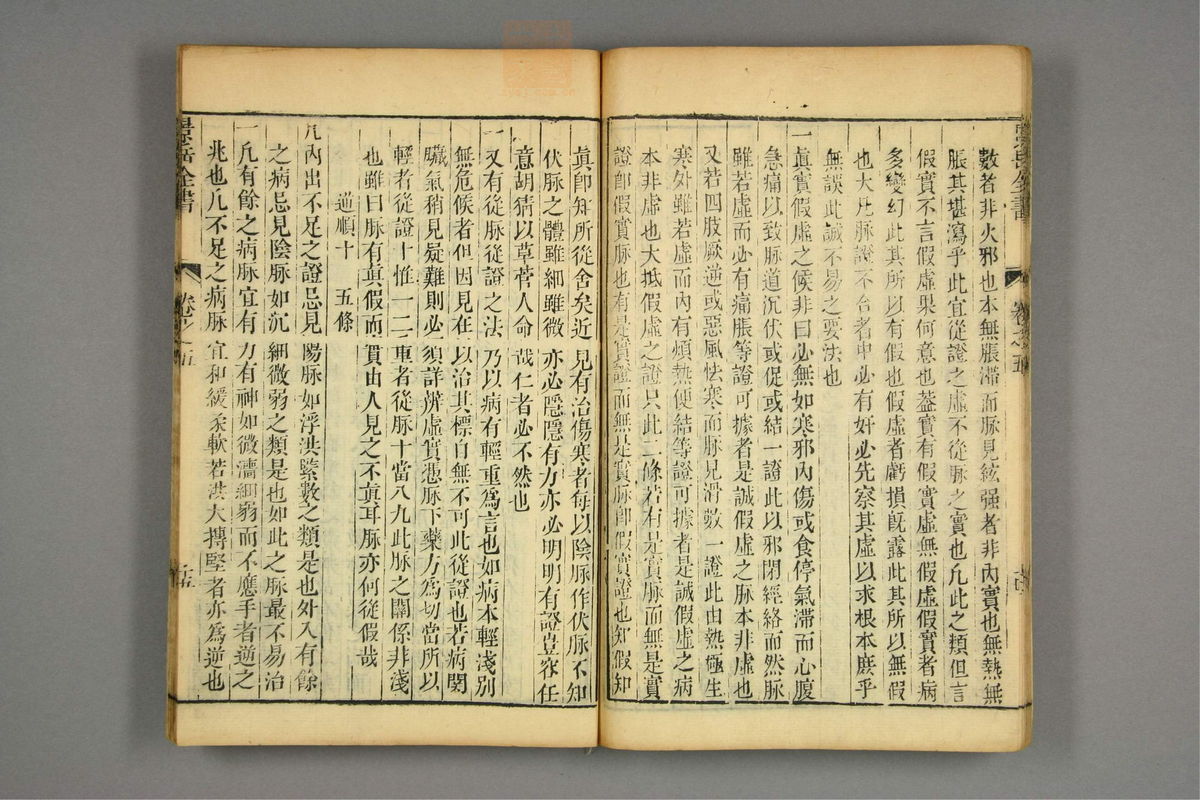 數者非火邪也本無脹滯而脉見絃强者非內實也無熱無
脹其堪瀉乎此宜從證之虛不從脉之實也凢此之類但言
假實不言假虛果何意也葢實有假實虛無假虛假實者病
多變幻此其所以有假也假虛者虧損旣露此其所以無假
也大凡脉證不合者中必有奸必先察其虛以求根本庶乎
無誤此誠不易之要法也
一眞實假虛之候非曰必無如寒邪內傷或食停氣滯而心腹
急痛以致脉道沉伏或促或結一證此以邪閉經絡而然脉
雖若虛而必有痛脹等證可據者是誠假虛之脉本非虛也
又若四肢厥逆或惡風怯寒而脉見滑數一證此由熱極生
寒外雖若虛而內有煩熱便結等證可據者是誠假虛之病
本非虛也大抵假虛之證只此二條若有是實脉而無是實
證卽假實脉也有是實證而無是實脉卽假實證也知假知
眞卽知所從舍矣近見有治傷寒者每以陰脉作伏脉不知
伏脉之體雖細雖微亦必隱隱有力亦必明明有證豈容任
意胡猜以草菅人命哉仁者必不然也
一又有從脉從證之法乃以病有輕重爲言也如病本輕淺別
無危候者但因見在以治其標自無不可此從證也若病関
臟氣稍見疑難則必須詳辨虛實憑脉下藥方爲切當所以
輕者從證十惟一二重者從脉十當八九此脉之關係非淺
也雖曰脉有眞假而實由人見之不眞耳脉亦何從假哉
逆順十 五條
凡內出不足之證忌見陽脉如浮洪緊數之類是也外入有餘
之病忌見陰脉如沉細微弱之類是也如此之脉最不易治
一凡有餘之病脉宜有力有神如微濇細弱而不應手者逆之
兆也凢不足之病脉宜和緩柔軟若洪大搏堅者亦爲逆也
景岳全書
卷之五
景岳全書
卷之五